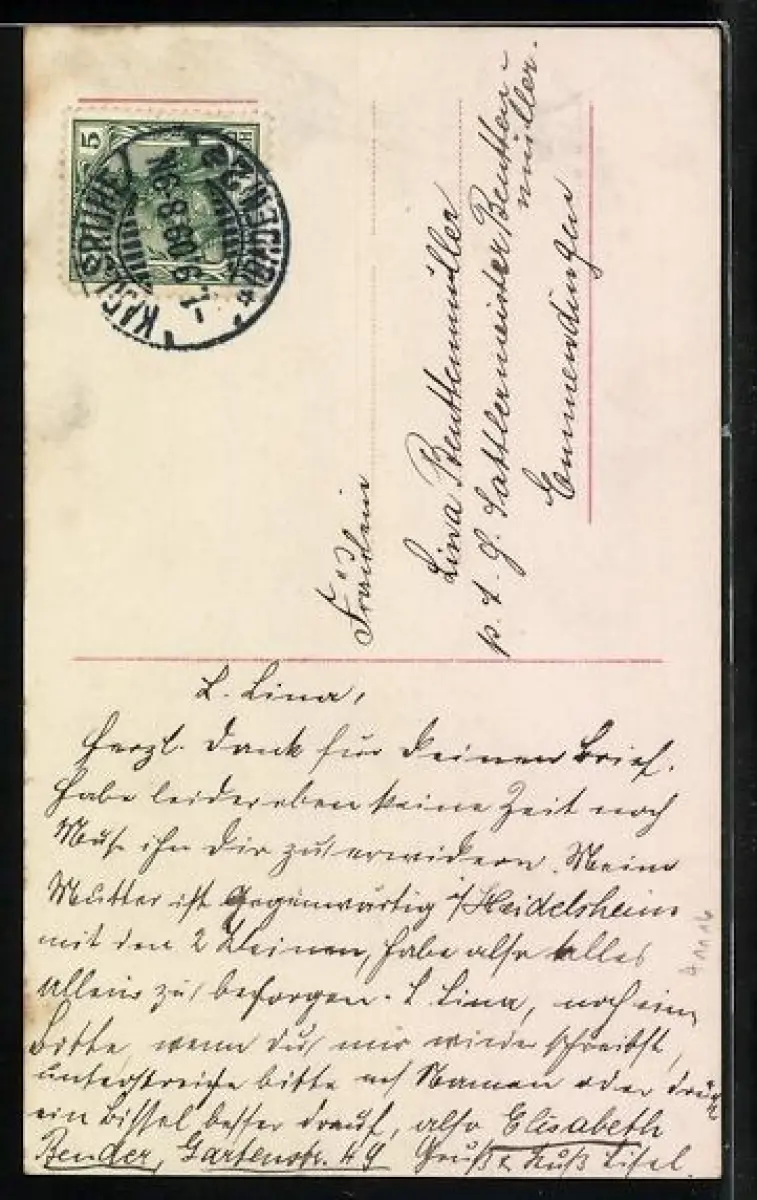 5
KARLSRUHE (BADEN) 2
-1.6.09.8-9N.
Fräulein
Lina Beuttenmüller
p. A. H. Sattlermeister Beutten-
müller.
Emmendingen
L. Lina,
Herzl. Dank für Deinen Brief.
Habe leider eben keine Zeit noch
Muse ihn Dir zu erwidern. Meine
Mutter ist gegenwärtig i/Heidelsheim
mit den 2 Kleinen, habe also alles
allein zu besorgen. L. Lina, noch eine
Bitte, wenn du mir wieder schreibst,
unterstreiche bitte auf Namen oder drück
ein bissel besser drauf, also Elisabeth
Bender, Gartenstr. 49 Gruß & Kuß Lisel.